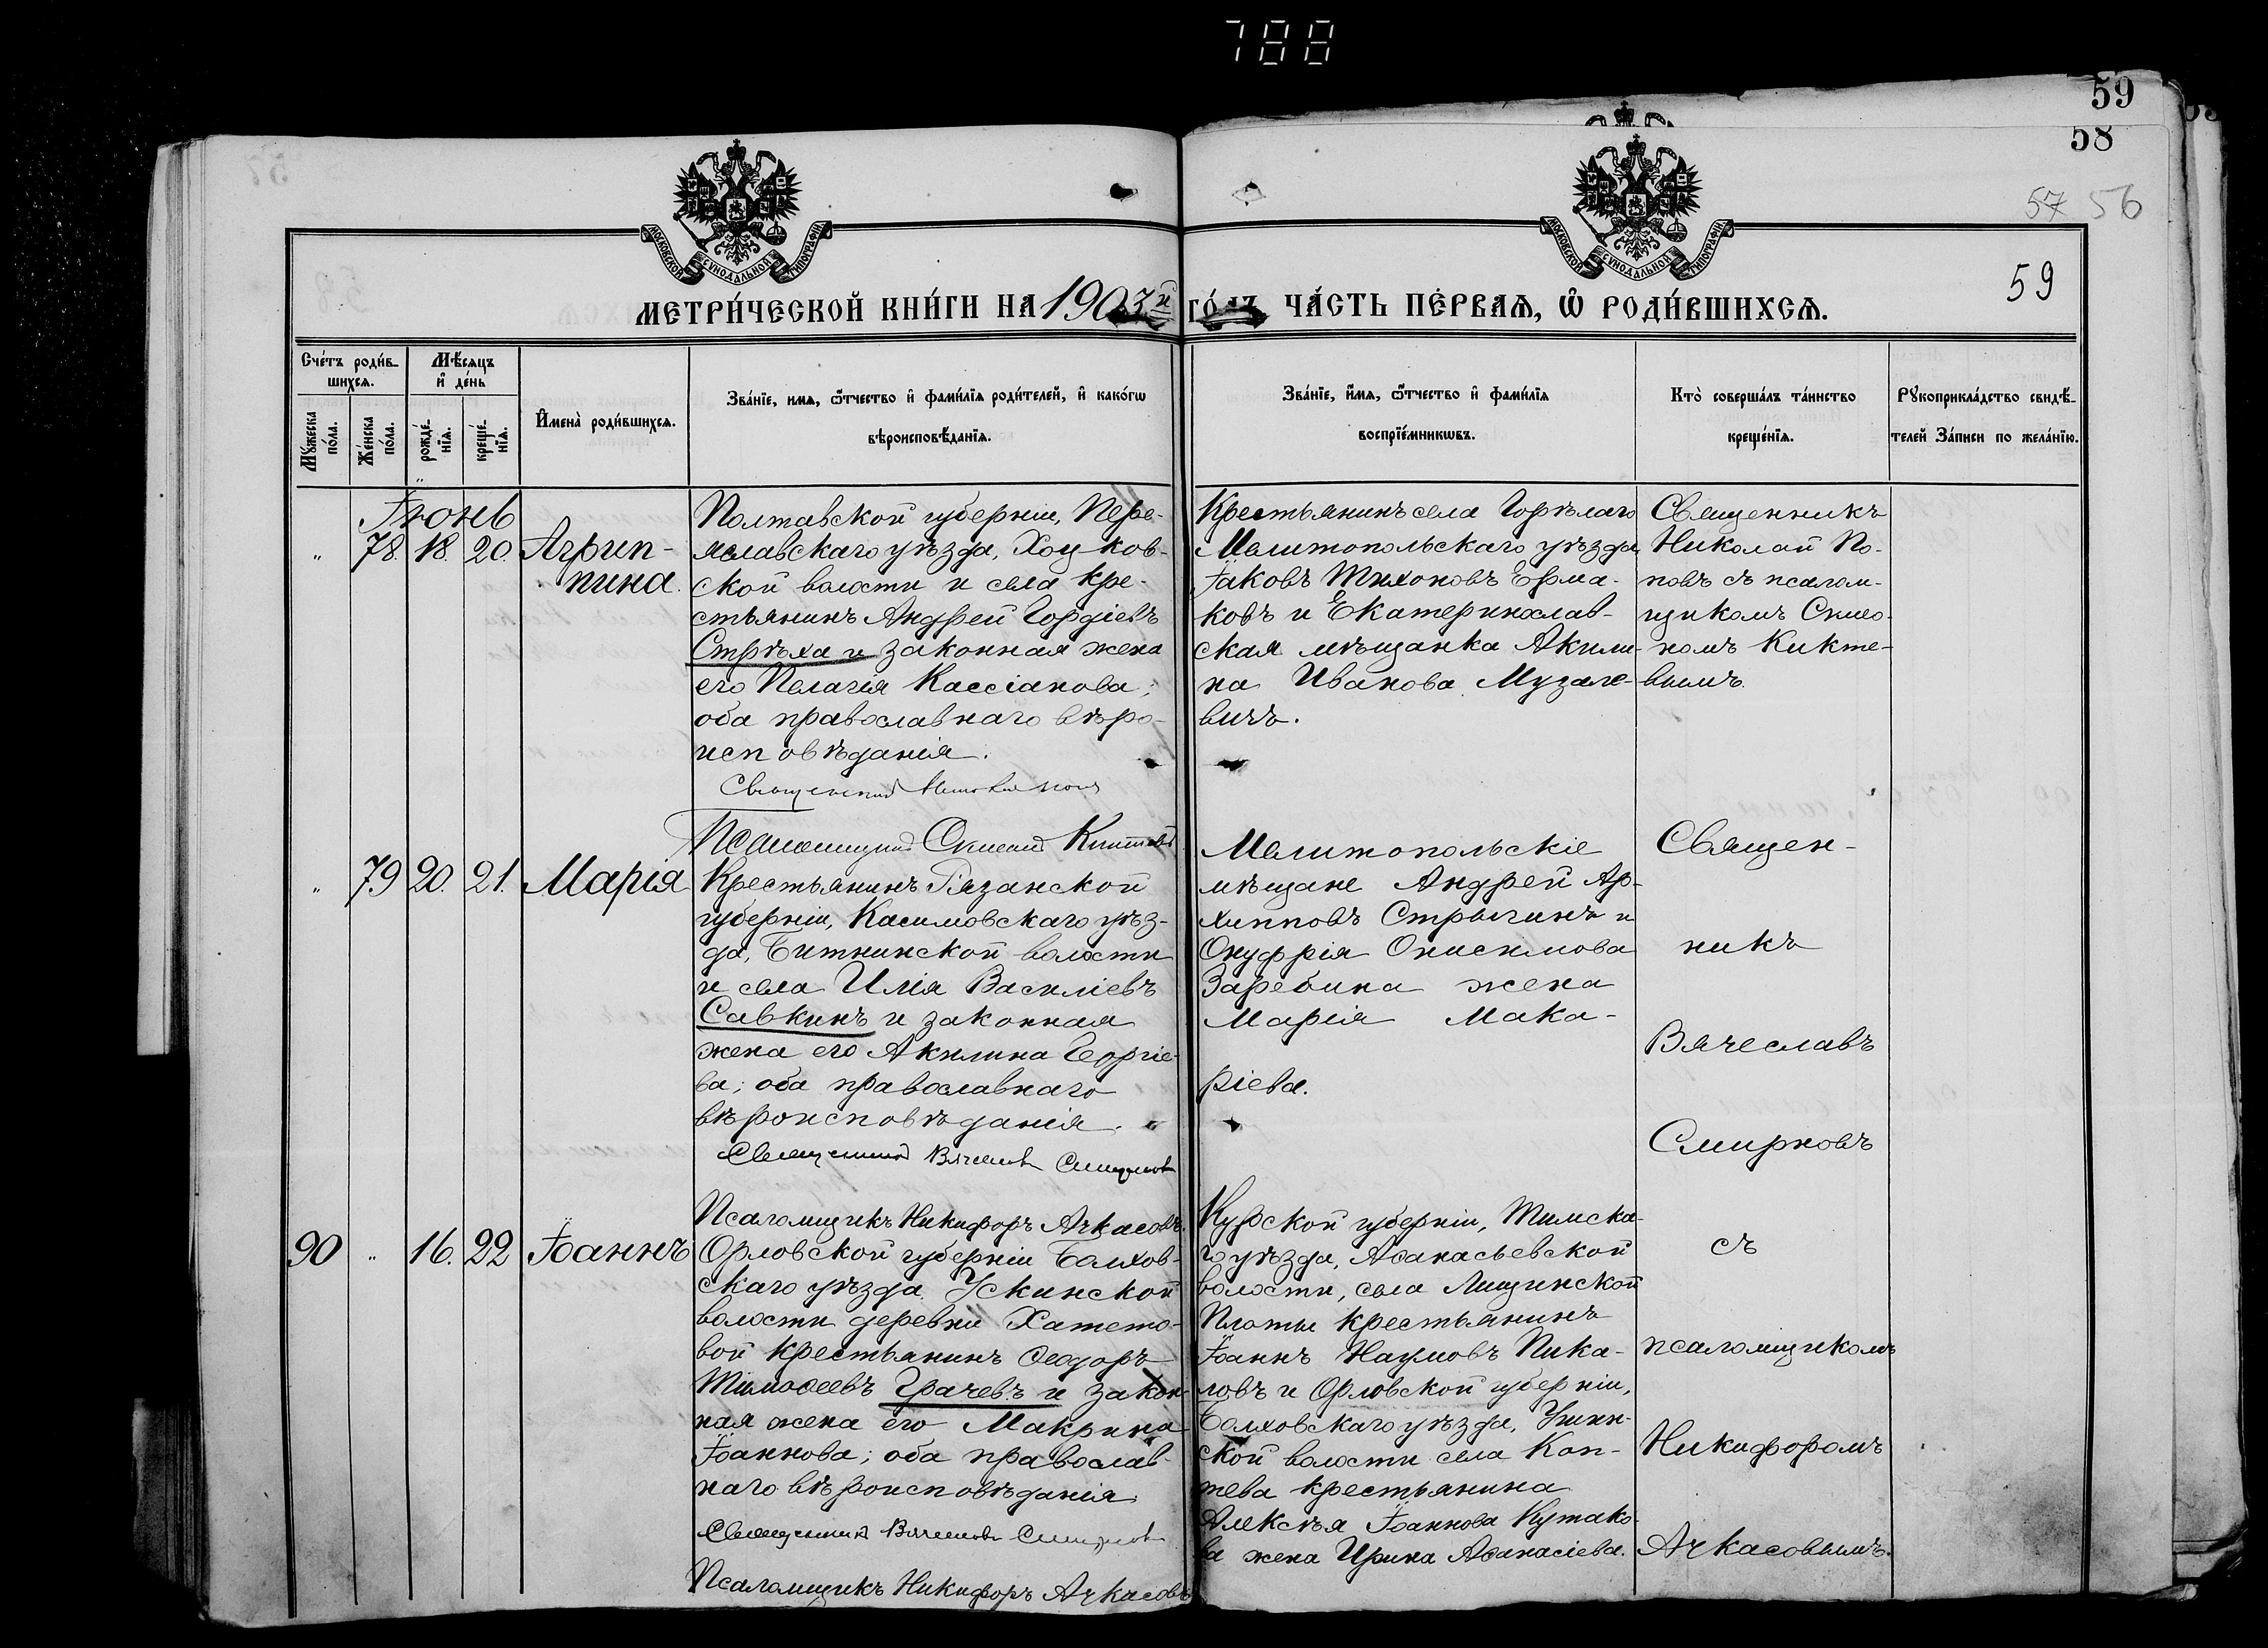 788
59
58
57 56
59
МОСКОВСКОЙ СѴНОДАЛЬНОЙ ТИПОГРАФІИ
МОСКОВСКОЙ СѴНОДАЛЬНОЙ ТИПОГРАФІИ
МЕТРИ́ЧЕСКОЙ КНИ́ГИ НА 1903й ГО́ДЪ, ЧА́СТЬ ПЕ́РВАЯ, Ѡ РОДИ́ВШИХСЯ.
Сче́тъ роди́в-
шихся.
Мѣ́сяцъ
и де́нь
Мꙋжеска по́ла.
Же́нска по́ла.
рожде́-нія.
креще́-нія.
Имена̀ роди́вшихся.
Зва́ніе, имя, ѿтчество и фами́лія роди́телей, и како́гѡ
вѣроисповѣ́данія.
Зва́ніе, и́мя, ѿтчество и фами́лія
воспріе́мникѡвъ.
Кто̀ соверша́лъ та́инство
креще́нія.
Рꙋкоприкла́дство свидѣ́-
телей За́писи по жела́нію.
Іюнь
„ 78. 18. 20. Агрип-
пина.
Полтавской губерніи, Пере-
яславскаго уѣзда, Хоцков-
ской волости и села кре-
стьянинъ Андрей Гордіевъ
Стрѣха и законная жена
его Пелагія Кассіанова;
оба православнаго вѣро-
исповѣданія.
Священникъ Николай Поповъ
Псаломщикъ Симеонъ Киктевъ
Крестьянинъ села Горѣлаго
Мелитопольскаго уѣзда
Іаковъ Тихоновъ Ерма-
ковъ и Екатеринослав-
ская мѣщанка Акили-
на Иванова Музале-
вичъ.
Священникъ
Николай По-
повъ съ псалом-
щикомъ Симео-
номъ Кикте-
вымъ.
„ 79 20. 21. Марія
Крестьянинъ Рязанской
губерніи, Касимовскаго уѣз-
да, Битнинской волости
и села Илія Василіевъ
Савкинъ и законная
жена его Акилина Георгіе-
ва; оба православнаго
вѣроисповѣданія.
Священникъ Вячеславъ Смирновъ
Псаломщикъ Никифоръ Ачкасовъ.
Мелитопольскіе
мѣщане Андрей Ар-
хипповъ Стрыгинъ и
Онуфрія Онисимова
Заребина жена
Марія Мака-
ріева.
Священ-
никъ
Вячеславъ
Смирновъ
съ
псаломщикомъ
Никифоромъ
Ачкасовымъ.
90 „ 16. 22 Іоаннъ
Орловской губерніи Болхов-
скаго уѣзда Ускинской
волости деревни Хатето-
вой крестьянинъ Ѳеодоръ
Тимоѳеевъ Грачевъ и закон-
ная жена его Макрина
Іоаннова; оба православ-
наго вѣроисповѣданія
Священникъ Вячеславъ Смирновъ
Псаломщикъ Никифоръ Ачкасовъ
Курской губерніи, Тимска-
го уѣзда, Аѳанасьевской
волости, села Лищинской
Плоты крестьянинъ
Іоаннъ Наумовъ Пика-
ловъ и Орловской губерніи,
Болховскаго уѣзда,
ской волости села Коп-
тева крестьянина
Алексѣя Іоаннова Кутако-
ва жена Ирина Аѳанасіева.